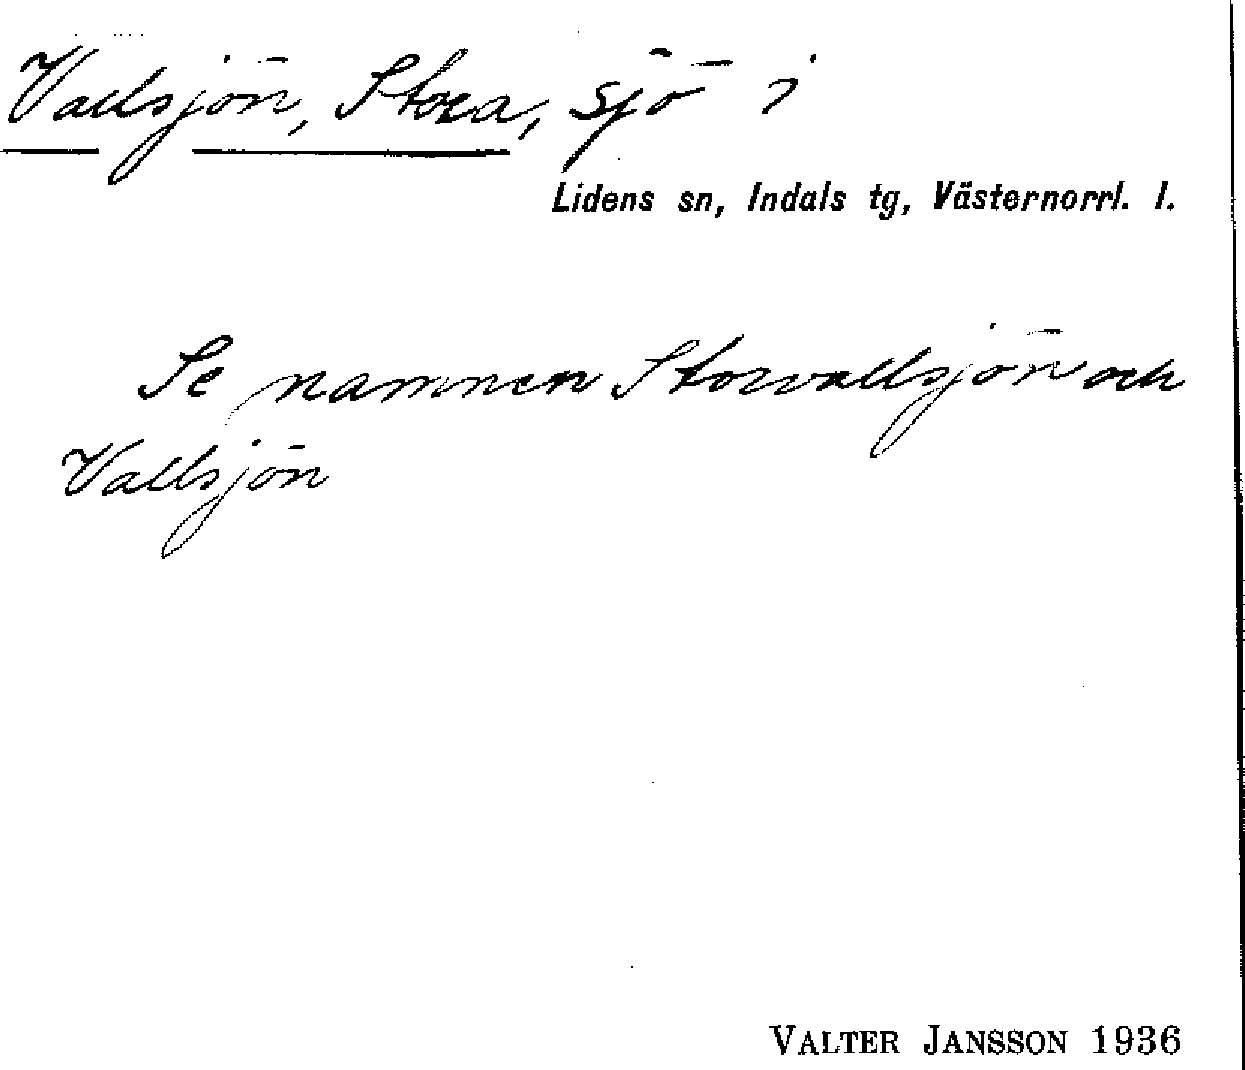 Vallsjön, Stora, sjö i
Lidens sn, Indals tg, Västernorrl. l.
Se namnen Storvallsjön och
Vallsjön
VALTER JANSSON 1936